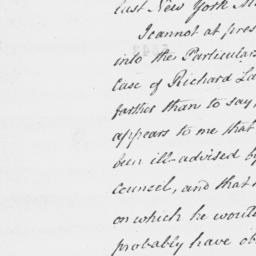 last New York
I cannot at pres
into the Particular
Case of Richard La
farther than to say,
appears to me that
been ill-advised by
Counsel, and that
on which he would
probably have ob